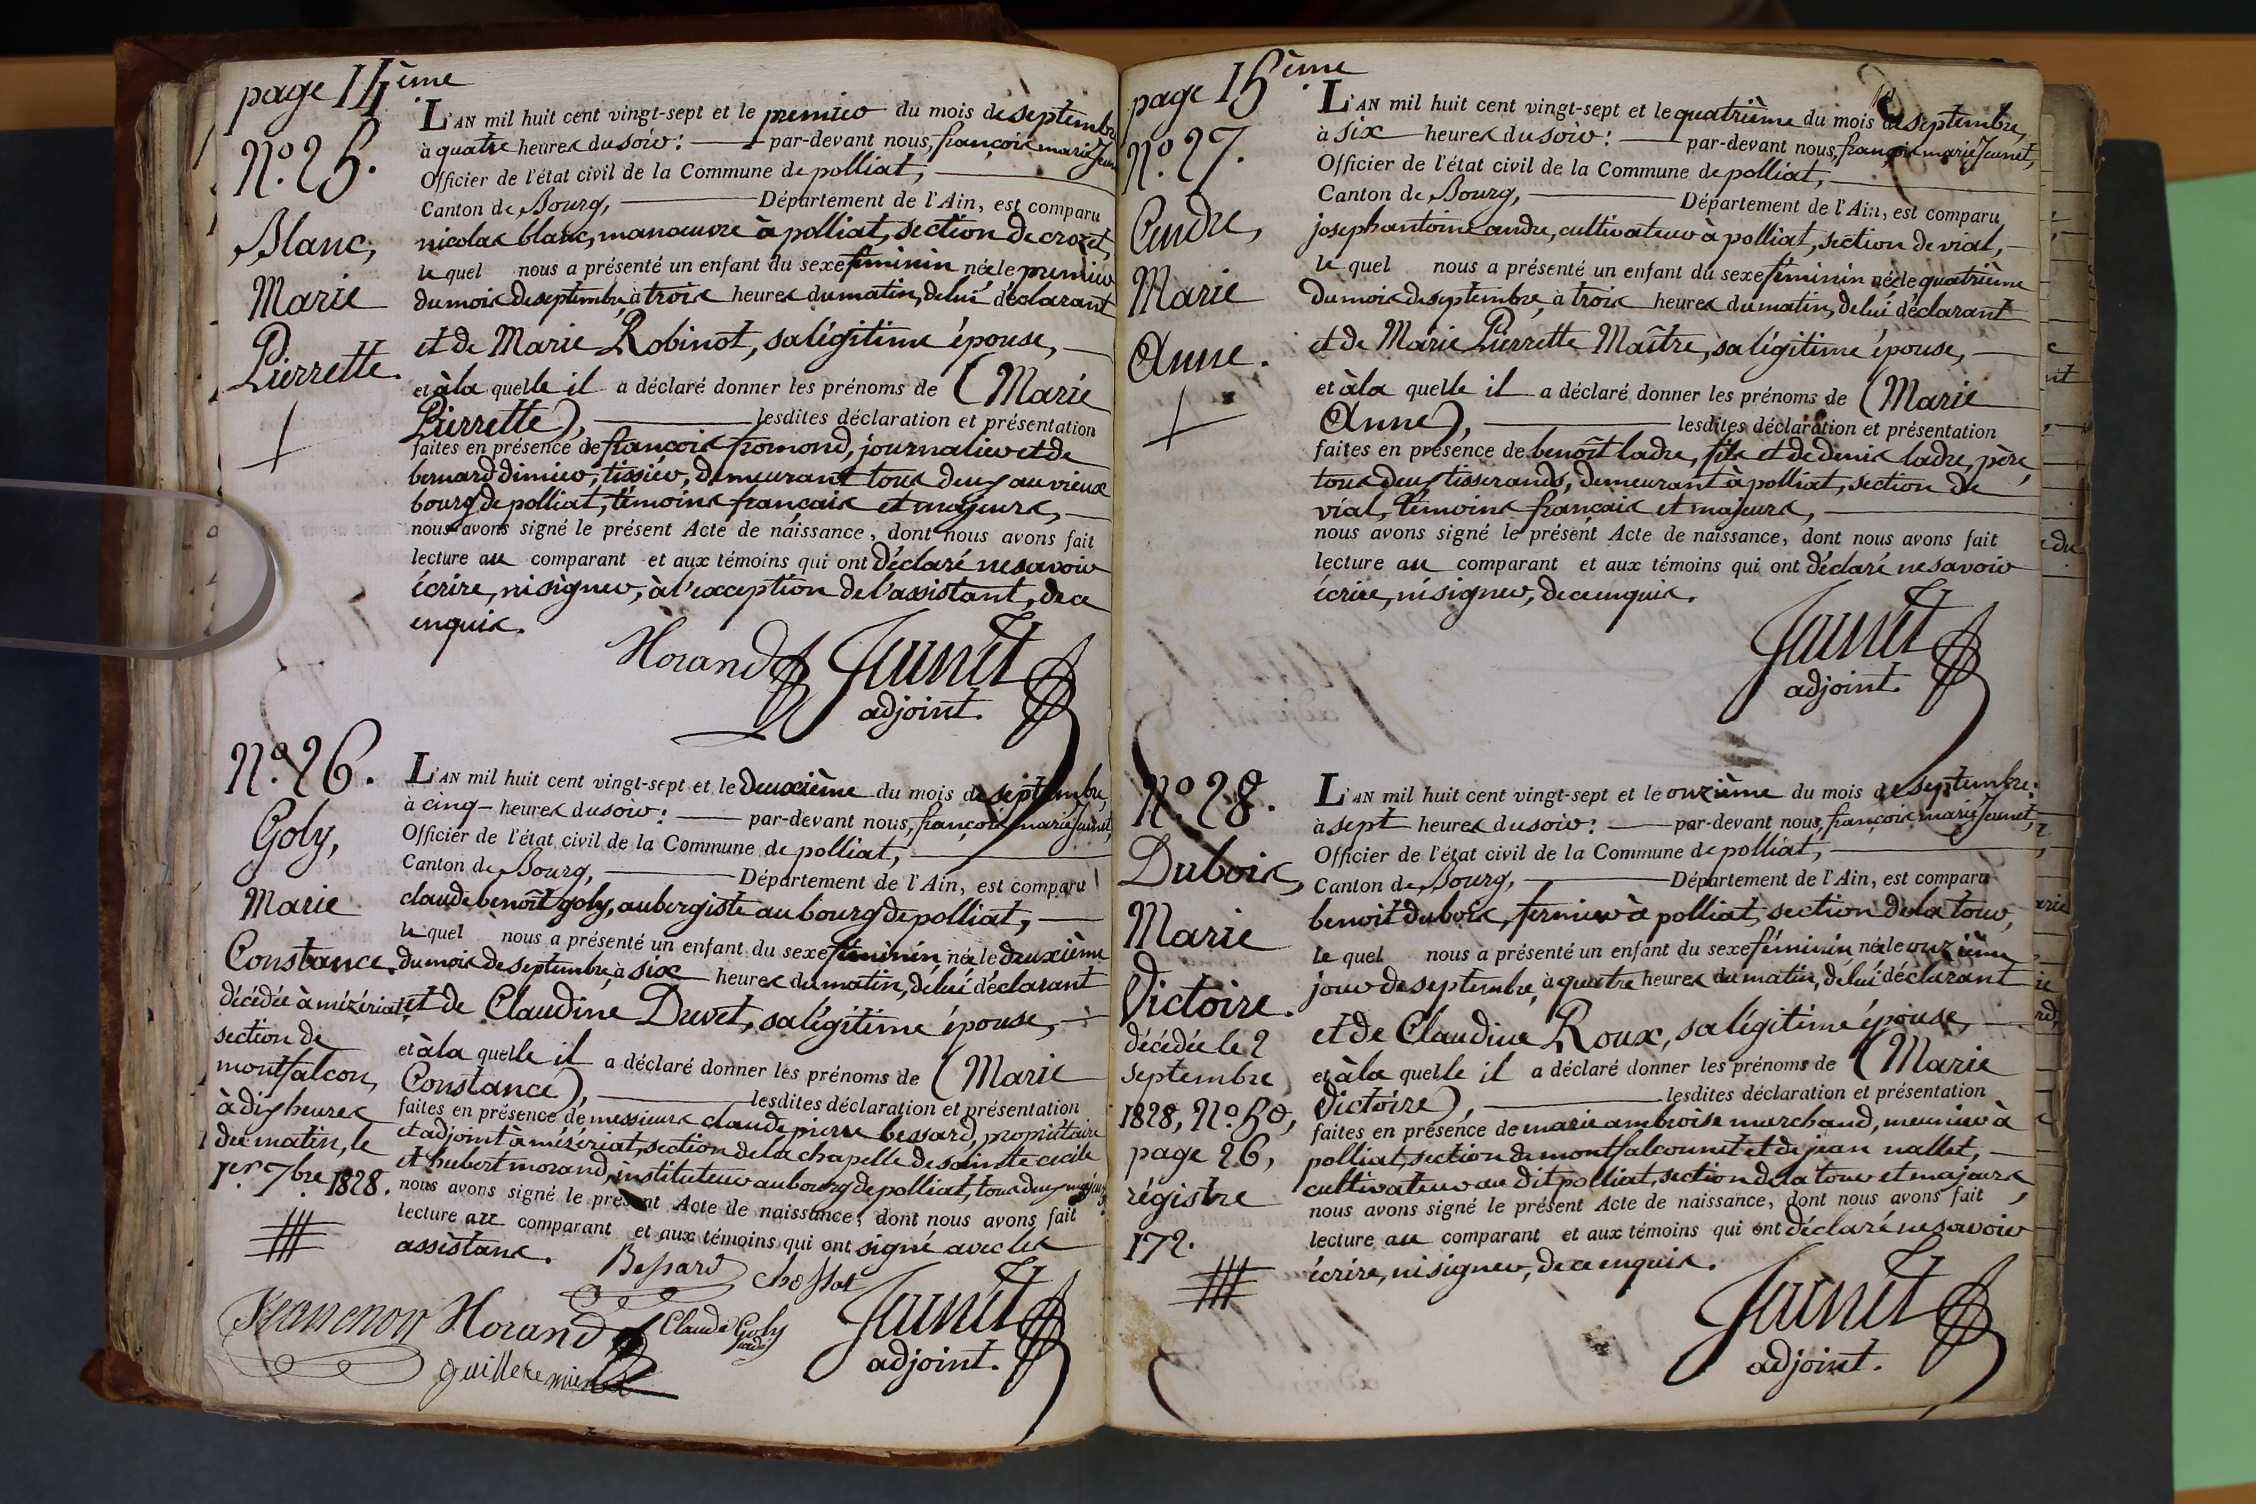 page 14ème
N.o 25.
Blanc,
Marie
Pierrette.
L'AN mil huit cent vingt-sept et le premier du mois de septembre
à quatre heures du soir: par-devant nous, françois marie Jeunet
Officier de l'état civil de la Commune de polliat,
Canton de Bourg, Département de l'Ain, est comparu
nicolas blanc, manœuvre à polliat, section de crozet,
le quel nous a présenté un enfant du sexe féminin née le premier
du mois de septembre, à trois heures du matin, de lui déclarant
et de Marie Robinot, sa légitime épouse,
et à la quelle il a déclaré donner les prénoms de (Marie
Pierrette), lesdites déclaration et présentation
faites en présence de françois fromond, journalier et de
bernard dimier, tissier, demeurant tous deux au vieux
bourg de polliat, témoins français et majeurs,
nous avons signé le présent Acte de naissance, dont nous avons fait
lecture au comparant et aux témoins qui ont déclaré ne savoir
écrire, ni signer, à l'exception de l'assistant, de ce
enquis.
Morand Jeunet
adjoint.
N.o 26.
Goly,
Marie
Constance.
décédée à mizériat,
section de
montfalcon,
à dix heures
du matin, le
1er. 7bre 1828.
L'AN mil huit cent vingt-sept et le deuxième du mois de septembre,
à cinq heures du soir: par-devant nous, françois marie Jeunet,
Officier de l'état civil de la Commune de polliat,
Canton de Bourg, Département de l'Ain, est comparu
claude benoît goly, aubergiste au bourg de polliat,
le quel nous a présenté un enfant du sexe féminin née le deuxième
du mois de septembre, à six heures du matin, de lui déclarant
et de Claudine Duvet, sa légitime épouse,
et à la quelle il a déclaré donner les prénoms de (Marie
Constance), lesdites déclaration et présentation
faites en présence de messieurs claude pierre bessard, propriétaire
et adjoint à mizériat, section de la chapelle de sainte cecile
et hubert morand, instituteur au bourg de polliat, tous deux majeurs
nous avons signé le présent Acte de naissance, dont nous avons fait
lecture au comparant et aux témoins qui ont signé avec les
assistans.
Bessard Chossat
Morand Claude Goly Jeunet
adjoint.
page 15ème
N.o 27.
Andre,
Marie
Anne.
L'AN mil huit cent vingt-sept et le quatrième du mois de septembre,
à six heures du soir: par-devant nous, françois marie Jeunet,
Officier de l'état civil de la Commune de polliat,
Canton de Bourg, Département de l'Ain, est comparu
joseph antoine andre, cultivateur à polliat, section de vial,
le quel nous a présenté un enfant du sexe féminin née le quatrième
du mois de septembre, à trois heures du matin, de lui déclarant
et de Marie Pierrette Maître, sa légitime épouse,
et à la quelle il a déclaré donner les prénoms de (Marie
Anne), lesdites déclaration et présentation
faites en présence de benoît ladre, fils et de denis ladre, père,
tous deux tisserands, demeurant à polliat, section de
vial, témoins français et majeurs,
nous avons signé le présent Acte de naissance, dont nous avons fait
lecture au comparant et aux témoins qui ont déclaré ne savoir
écrire, ni signer, de ce enquis.
Jeunet
adjoint.
N.o 28.
Dubois,
Marie
Victoire.
décédée le 2
septembre
1828, N.o 50,
page 26,
régistre
172.
L'AN mil huit cent vingt-sept et le onzième du mois de septembre:
à sept heures du soir: par-devant nous, françois marie Jeunet,
Officier de l'état civil de la Commune de polliat,
Canton de Bourg, Département de l'Ain, est comparu
benoit dubois, fermier à polliat, section de la tour,
le quel nous a présenté un enfant du sexe féminin née le onzième
jour de septembre, à quatre heures du matin, de lui déclarant
et de Claudine Roux, sa légitime épouse,
et à la quelle il a déclaré donner les prénoms de (Marie
Victoire), lesdites déclaration et présentation
faites en présence de marie ambroise marchand, meunier à
polliat, section de montfalconnet et de jean nallet,
cultivateur au dit polliat, section de la tour et majeurs,
nous avons signé le présent Acte de naissance, dont nous avons fait
lecture au comparant et aux témoins qui ont déclaré ne savoir
écrire, ni signer, de ce enquis.
Jeunet
adjoint.